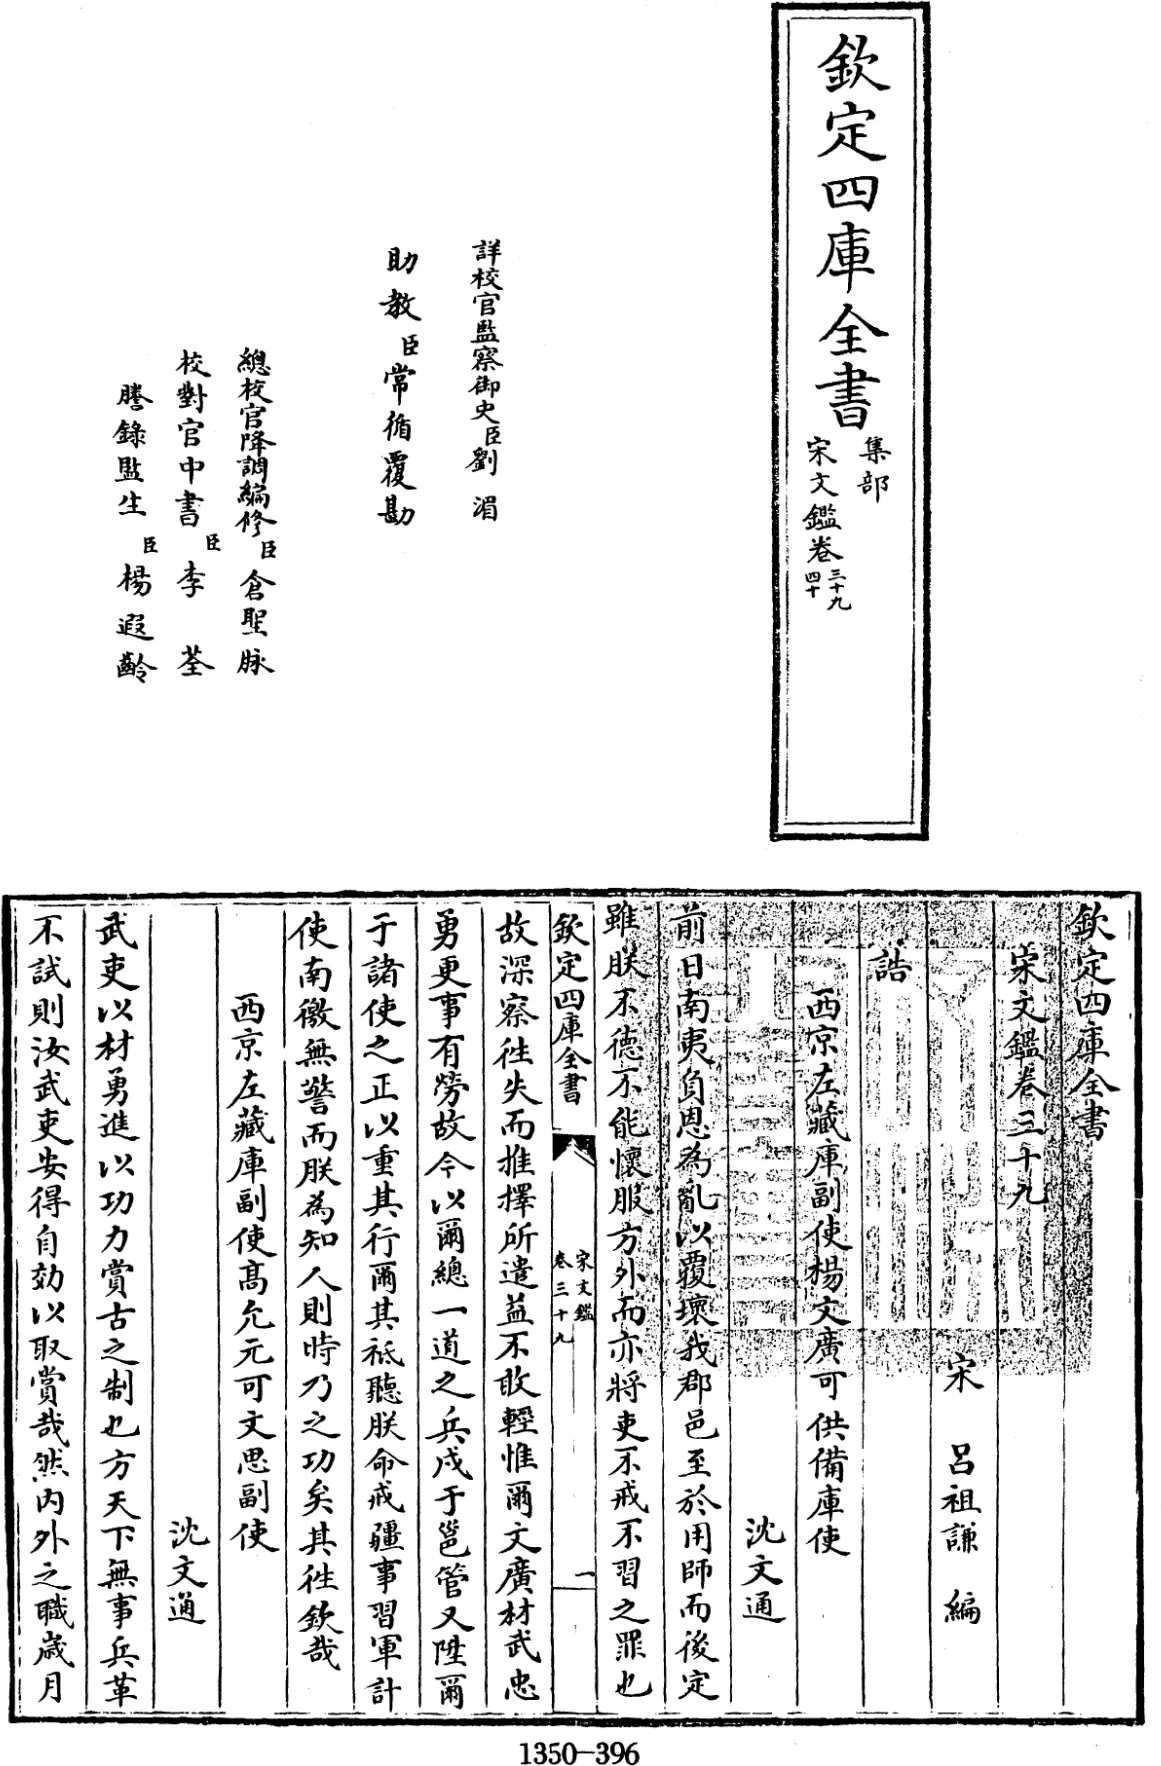 欽定四庫全書
集部
宋文鑑卷三十九
四十
詳校官監察御史臣劉湄
助教臣常循覆勘
總校官降調編修臣倉聖脉
校對官中書臣李荃
謄錄監生臣楊遐齡
欽定四庫全書
宋文鑑卷三十九
宋 呂祖謙 編
誥
西京左藏庫副使楊文廣可供備庫使
沈文通
前日南夷負恩為亂以覆壞我郡邑至於用師而後定
雖朕不德不能懷服方外而亦將吏不戒不習之罪也
欽定四庫全書
宋文鑑
卷三十九
一
故深察往失而推擇所遣益不敢輕惟爾文廣材武忠
勇更事有勞故令以爾總一道之兵戍于邕管又陞爾
于諸使之正以重其行爾其祗聽朕命戒疆事習軍計
使南徼無警而朕為知人則時乃之功矣其往欽哉
西京左藏庫副使髙允元可文思副使
沈文通
武吏以材勇進以功力賞古之制也方天下無事兵革
不試則汝武吏安得自効以取賞哉然内外之職歲月
1350—396